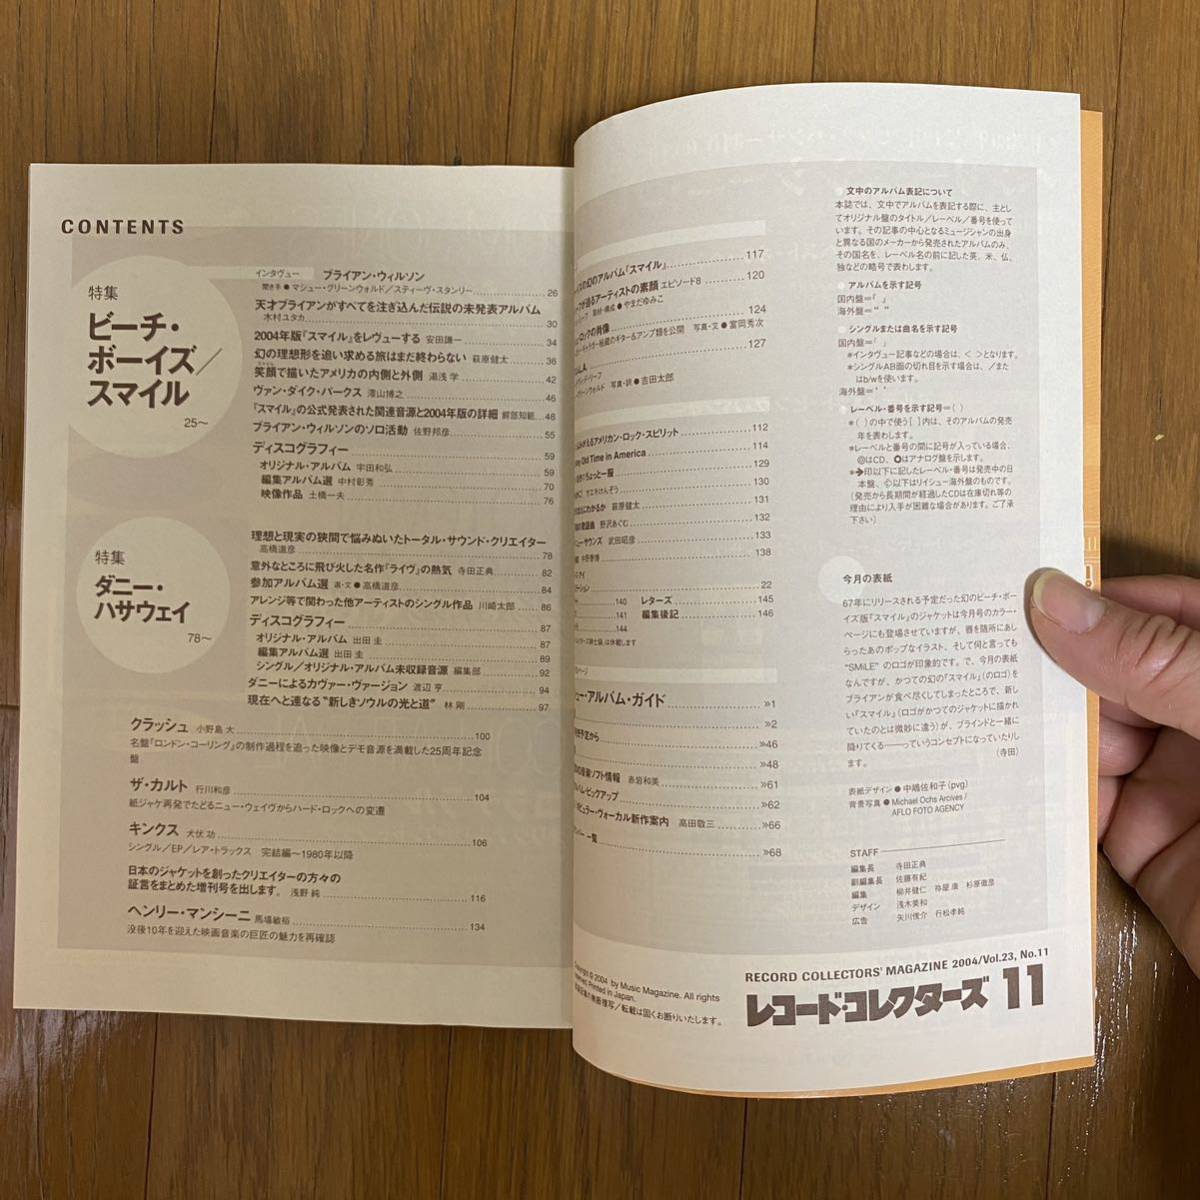 CONTENTS
特集
ビーチ・
ボーイズ/
スマイル
25〜
インタヴュー ブライアン・ウィルソン
聞き手●マシュー・グリーンウォルド/スティーヴ・スタンリー 26
天才ブライアンがすべてを注ぎ込んだ伝説の未発表アルバム
木村ユタカ 30
2004年版『スマイル』をレヴューする 安田謙一 34
幻の理想形を追い求める旅はまだ終わらない 萩原健太 36
笑顔で描いたアメリカの内側と外側 湯浅 学 42
ヴァン・ダイク・パークス 澤山博之 46
『スマイル』の公式発表された関連音源と2004年版の詳細 48
ブライアン・ウィルソンのソロ活動 佐野邦彦 55
ディスコグラフィー 59
オリジナル・アルバム 宇田和弘 59
編集アルバム選 中村彰秀 70
映像作品 土橋一夫 76
特集
ダニー・
ハサウェイ
78〜
理想と現実の狭間で悩みぬいたトータル・サウンド・クリエイター
高橋道彦 78
意外なところに飛び火した名作『ライヴ』の熱気 寺田正典 82
参加アルバム選 選・文●高橋道彦 84
アレンジ等で関わった他アーティストのシングル作品 川崎太郎 86
ディスコグラフィー 87
オリジナル・アルバム 出田 圭 87
編集アルバム選 出田 圭 89
シングル/オリジナル・アルバム未収録音源 編集部 92
ダニーによるカヴァー・ヴァージョン 渡辺 亨 94
現在へと連なる“新しきソウルの光と道” 林 剛 97
クラッシュ 小野島 大 100
名盤『ロンドン・コーリング』の制作過程を追った映像とデモ音源を満載した25周年記念
盤
ザ・カルト 行川和彦 104
紙ジャケ再発でたどるニュー・ウェイヴからハード・ロックへの変遷
キンクス 犬伏 功 106
シングル/EP/レア・トラックス 完結編〜1980年以降
日本のジャケットを創ったクリエイターの方々の
証言をまとめた増刊号を出します。 浅野 純 116
ヘンリー・マンシーニ 馬場敏裕 134
没後10年を迎えた映画音楽の巨匠の魅力を再確認
の幻のアルバム『スマイル』 117
が造るアーティストの素顔 エピソード8 120
取材・構成●やまだゆみこ
ロックの肖像 124
秘蔵のギター&アンプ類を公開 写真・文●富岡秀次
L.A 127
写真・訳●吉田太郎
アメリカン・ロック・スピリット 112
Old Time in America 114
ちょっと一服 129
サエキけんぞう 130
にわかるか 萩原健太 131
歌謡曲 野沢あぐむ 132
ニューサウンズ 武田昭彦 133
138
22
140 レターズ 145
141 編集後記 146
144
は休載します
ュー・アルバム・ガイド »1
発売予定から »2
»46
»48
の音楽ソフト情報 赤岩和美 »61
ルバム・ピックアップ »62
ピュラー・ヴォーカル新作案内 高田敬三 »66
ンバー 一覧 »68
文中のアルバム表記について
本誌では、文中でアルバムを表記する際に、主とし
てオリジナル盤のタイトル/レーベル/番号を使って
います。その記事の中心となるミュージシャンの出身
と異なる国のメーカーから発売されたアルバムのみ、
その国名を、レーベル名の前に記した英、米、仏、
独などの略号で表わします。
アルバムを示す記号
国内盤=『 』
海外盤=“ ”
シングルまたは曲名を示す記号
国内盤=「 」
*インタヴュー記事などの場合は、< >となります。
*シングルAB面の切れ目を示す場合は、/また
はb/wを使います。
海外盤=‘ ’
レーベル・番号を示す記号=( )
*( )の中で使う[ ]内は、そのアルバムの発売
年を表わします。
*レーベルと番号の間に記号が入っている場合、
◎はCD、✪はアナログ盤を示します。
*➔印以下に記したレーベル・番号は発売中の日
本盤、以下はリイシュー海外盤のものです。
(発売から長期間が経過したCDは在庫切れ等の
理由により入手が困難な場合があります。ご了承
下さい)
今月の表紙
67年にリリースされる予定だった幻のビーチ・ボー
イズ版『スマイル』のジャケットは今月号のカラー・
ページにも登場させていますが、唇を随所にあし
らったあのポップなイラスト、そして何と言っても
“SMiLE”のロゴが印象的です。で、今月の表紙
なんですが、かつての幻の『スマイル』(のロゴ)を
ブライアンが食べ尽くしてしまったところで、新し
い『スマイル』(ロゴがかつてのジャケットに描かれ
ていたのとは微妙に違う)が、ブラインドと一緒に
降りてくる――っていうコンセプトになっていたりし
ます。 (寺田)
表紙デザイン●中嶋佐和子(pvg)
背景写真●Michael Ochs Arcives/
AFLO FOTO AGENCY
STAFF
編集長 寺田正典
副編集長 佐藤有紀
編集 柳井健仁 祢屋 康 杉原徹彦
デザイン 浅木美和
広告 矢川俊介 行松孝純
Copyright © 2004 by Music Magazine. All rights
reserved. Printed in Japan.
無断複写/転載は固くお断りいたします。
RECORD COLLECTORS' MAGAZINE 2004/Vol.23, No.11
レコード・コレクターズ 11